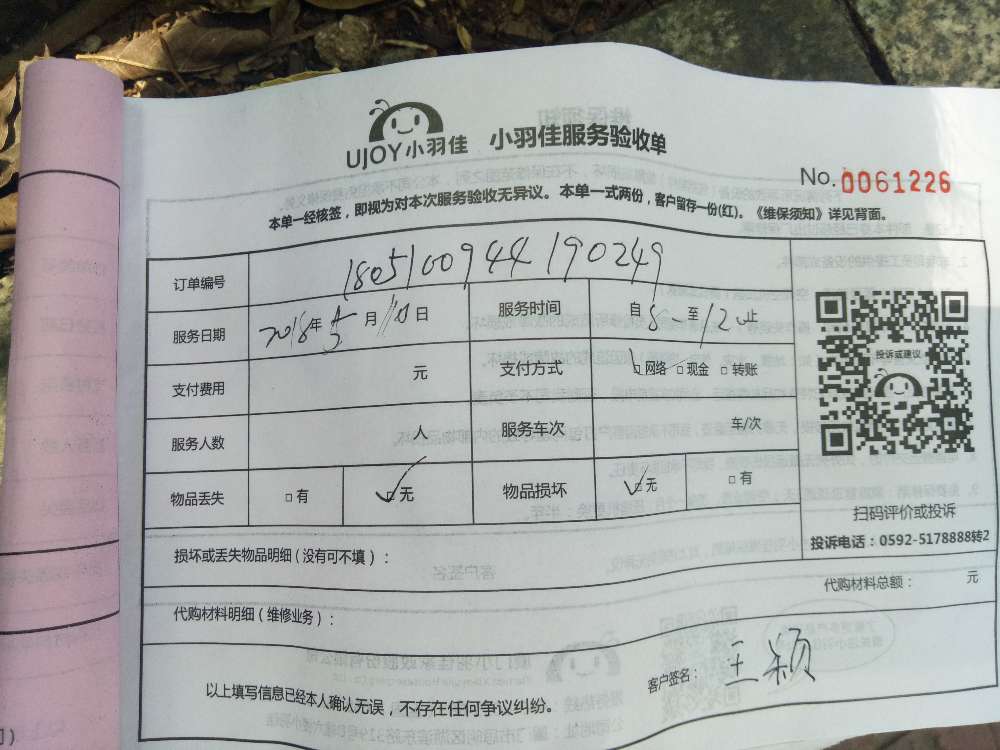 UJOY小羽佳 小羽佳服务验收单
No. 0061226
本单一经核签，即视为对本次服务验收无异议。本单一式两份，客户留存一份(红)。《维保须知》详见背面。
订单编号 1805100944190249
服务日期 2018年5月10日 服务时间 自8至12止
支付费用 元 支付方式 □网络 □现金 □转账
服务人数 人 服务车次 车/次
物品丢失 □有 ☑无 物品损坏 ☑无 □有
投诉或建议
扫码评价或投诉
投诉电话：0592-5178888转2
损坏或丢失物品明细（没有可不填）：
代购材料总额： 元
代购材料明细（维修业务）：
以上填写信息已经本人确认无误，不存在任何争议纠纷。
客户签名：王颖